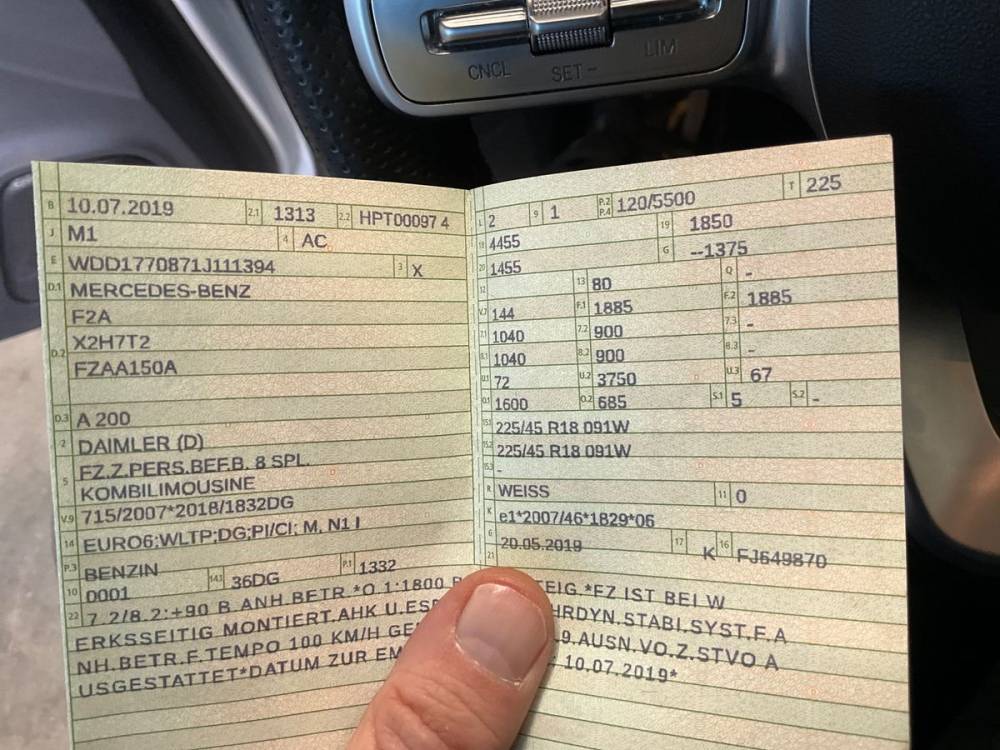 CNCL SET - LIM
B 10.07.2019 2.1 1313 2.2 HPT00097 4
J M1 4 AC
E WDD1770871J111394 3 X
D.1 MERCEDES-BENZ
F2A
D.2 X2H7T2
FZAA150A
D.3 A 200
2 DAIMLER (D)
5 FZ.Z.PERS.BEF.B. 8 SPL.
KOMBILIMOUSINE
V.9 715/2007*2018/1832DG
14 EURO6;WLTP;DG;PI/CI; M, N1 I
P.3 BENZIN
10 0001 14.1 36DG P.1 1332
L 2 9 1 P.2 P.4 120/5500 T 225
18 4455 19 1850
20 1455 G --1375
12 13 80 Q -
V.7 144 F.1 1885 F.2 1885
7.1 1040 7.2 900 7.3 -
8.1 1040 8.2 900 8.3 -
U.1 72 U.2 3750 U.3 67
O.1 1600 O.2 685 S.1 5 S.2 -
15.1 225/45 R18 091W
15.2 225/45 R18 091W
15.3 -
R WEISS 11 0
K e1*2007/46*1829*06
6 20.05.2019 17 K 16 FJ649870
21
22 7.2/8.2:+90 B.ANH BETR.*O.1:1800 B STEIG *FZ IST BEI W
ERKSSEITIG MONTIERT.AHK U.ESP HRDYN.STABI.SYST.F.A
NH.BETR.F.TEMPO 100 KM/H GE 9.AUSN.VO.Z.STVO A
USGESTATTET*DATUM ZUR EM 10.07.2019*